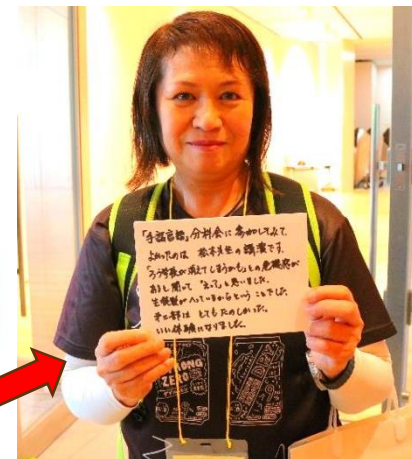 「手話言語」分科会に参加してみて、
よかったのは 松本先生の講演です。
「ろう学校が消えてしまうかも」との危機感が
あると聞って "えっ"と思いました。
生徒数がへっているからということでした。
第二部は とても たのしかった。
いい体験になりました。
STRONG
ZERO